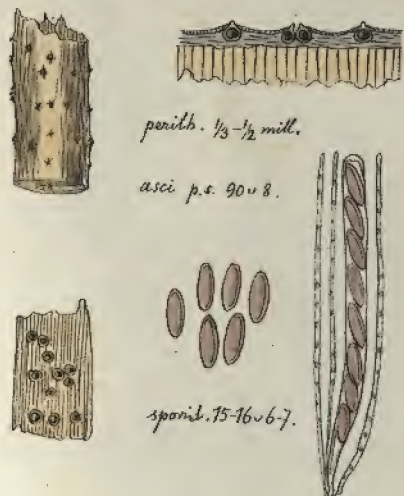 perith. 1/3-1/2 mill.
asci p.s. 90 v 8.
sporid. 15-16 v 6-7.